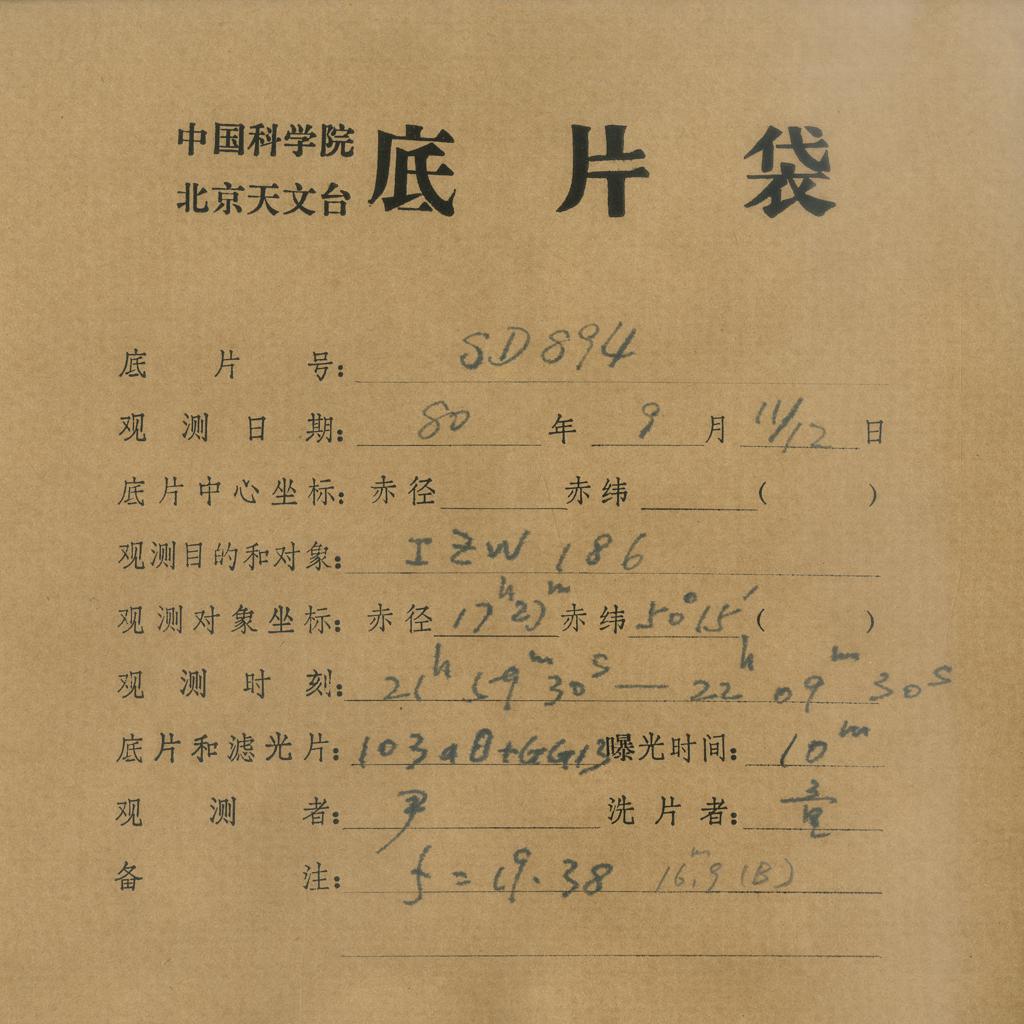 中国科学院
北京天文台
底片袋
底片号: SD894
观测日期: 80 年 9 月 11/12 日
底片中心坐标: 赤径 赤纬 ( )
观测目的和对象: I ZW 186
观测对象坐标: 赤径 17h27m 赤纬 50°15′ ( )
观测时刻: 21h 59m 30s — 22h 09m 30s
底片和滤光片: 103aO+GG13 曝光时间: 10m
观测者: 尹 洗片者:
备注: f = 19.38 16m.9 (B)